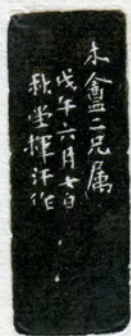 木盦二兄属
戊午六月廿日
秋堂揮汗作